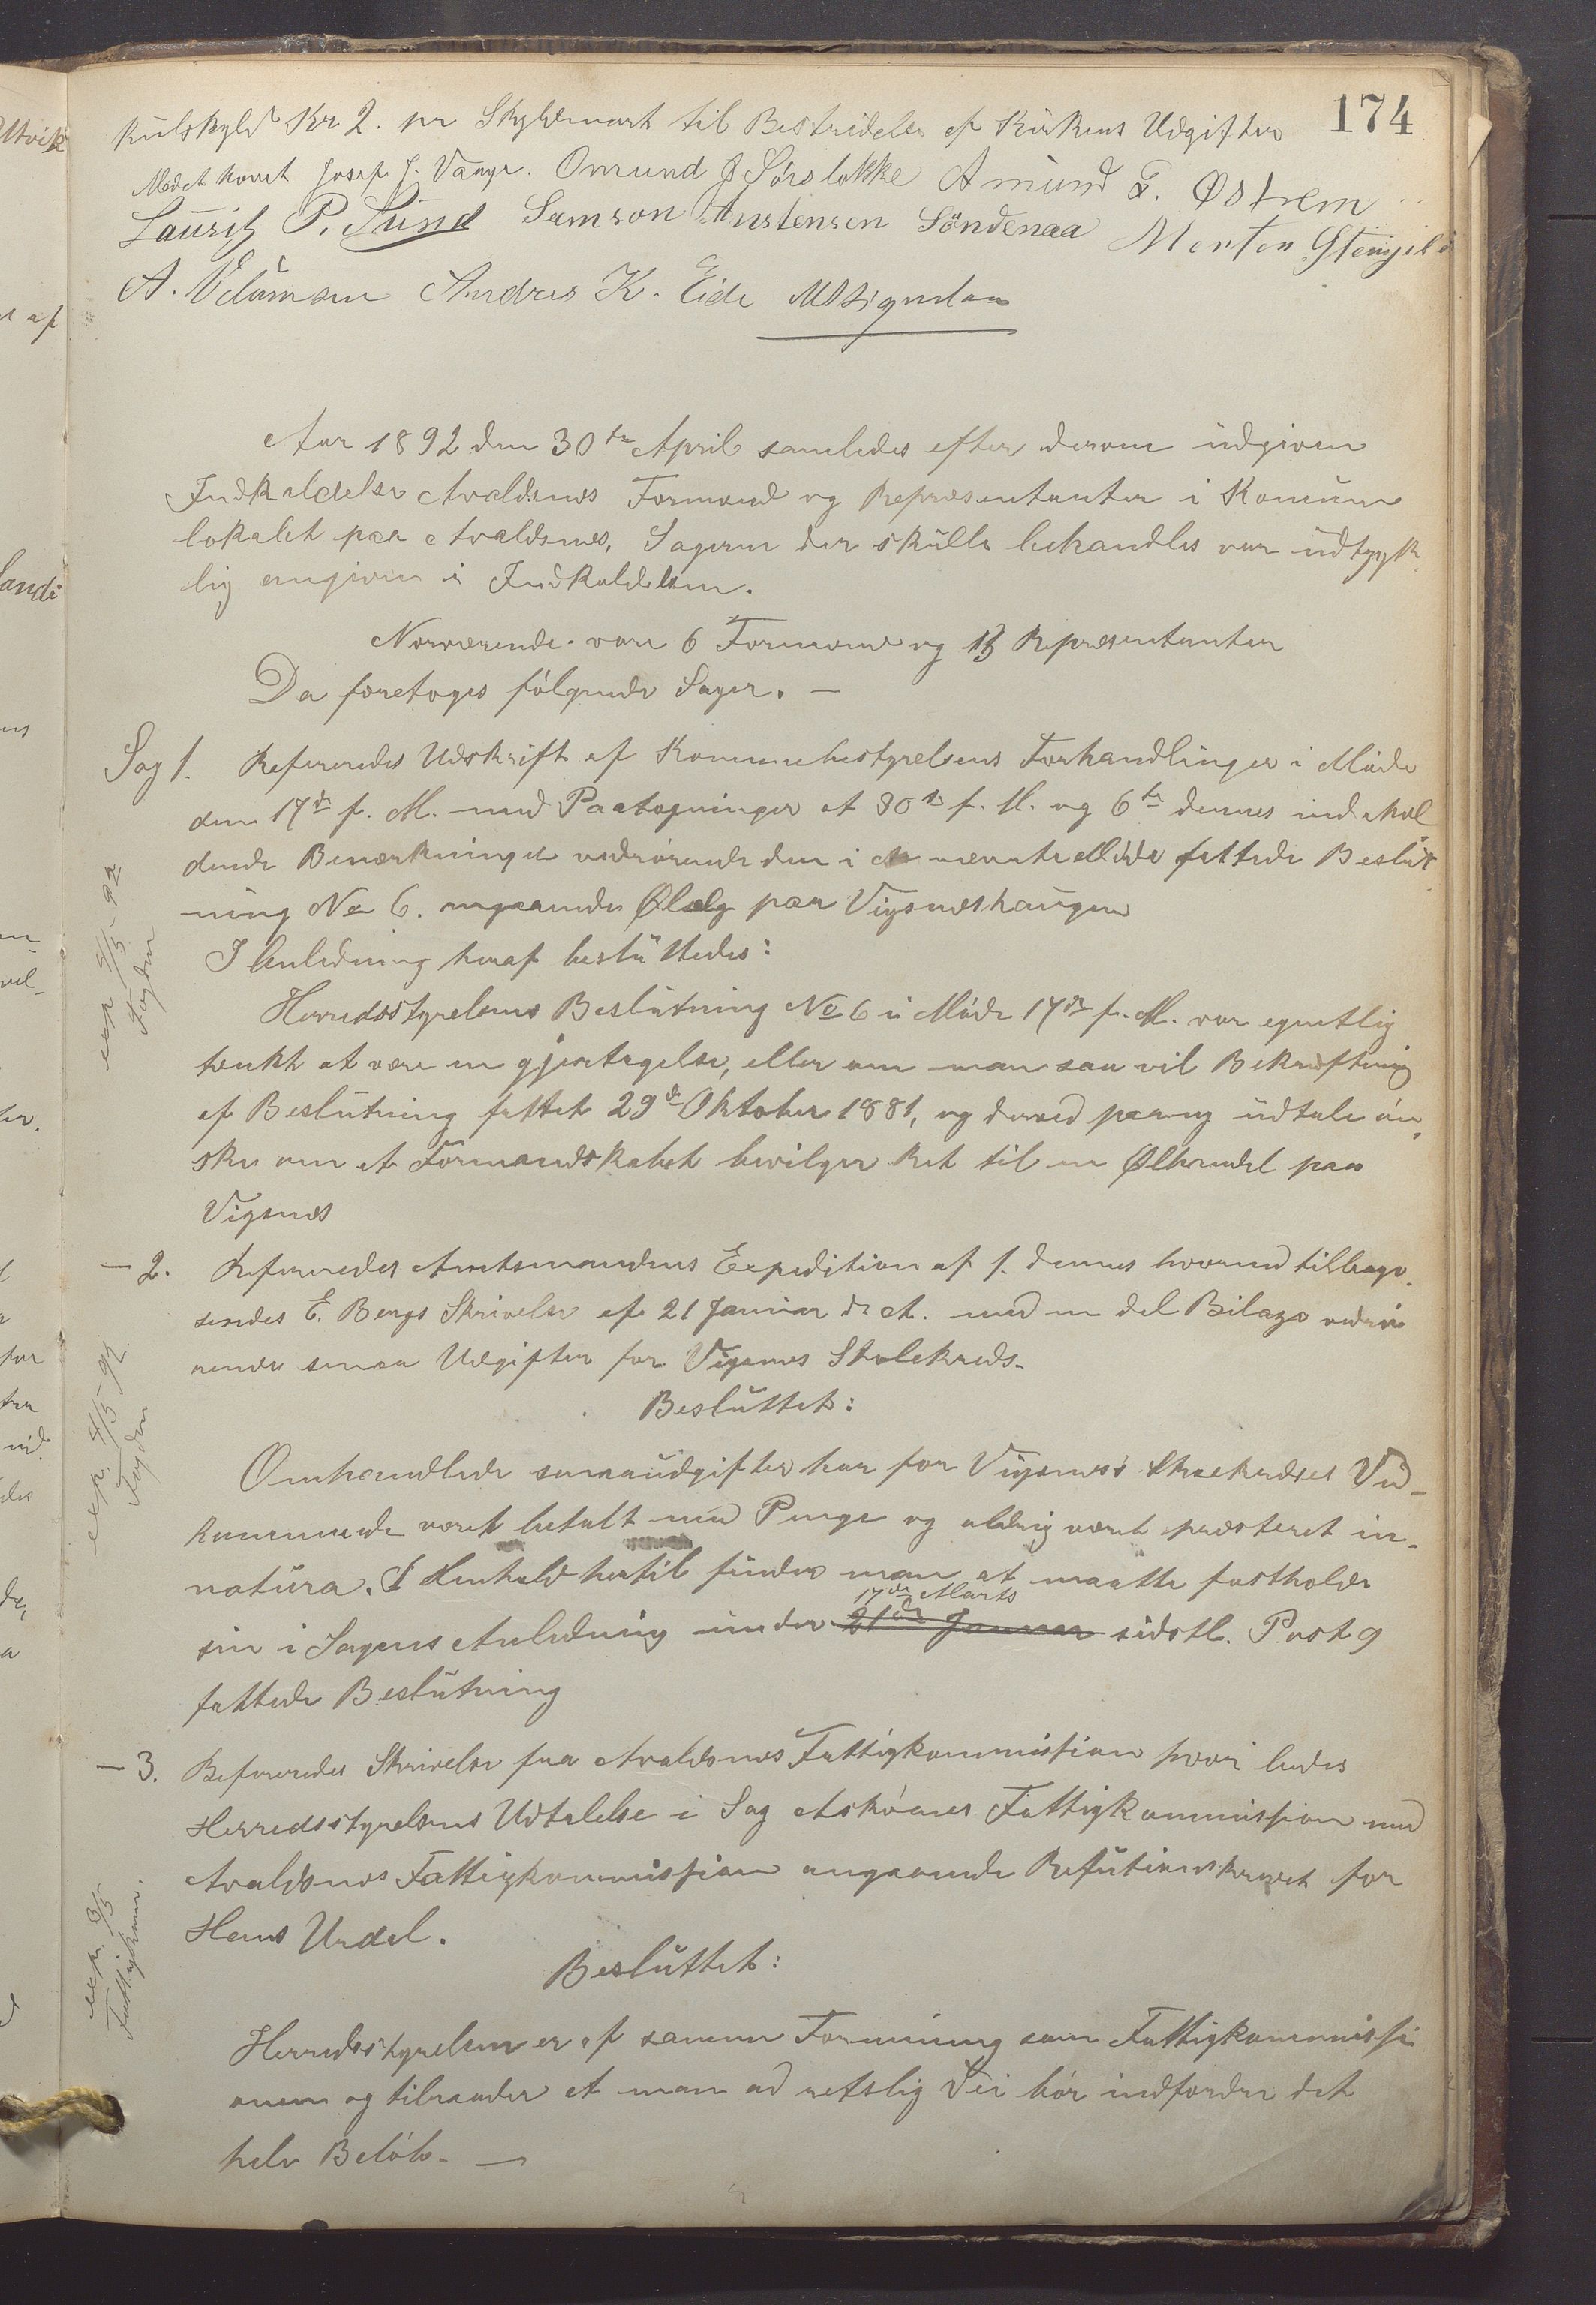 174
kulskyld Kr 2. pr Skyldmark til Bestridelse af Kirkens Udgifter
Mødet hævet Josef J. Vaage. Omund J Sörstokke Amund T. Østrem
Laurits P. Sund Samson Austensen Söndenaa Morten
A. Velúmsen Andres K. Eide
Aar 1892 den 30te April samledes efter derom udgiven
Indkaldelse Avaldsnes Formænd og Repræsentanter i Komune
lokalet paa Avaldsnes, Sagerne der skulle behandles var udtryk
lig angiven i Indkaldelsen.
Nærværende vare 6 Formænd og 13 Repræsentanter
Da foretoges fölgende Sager. —
Sag 1. Refereredes Udskrift af Kommunebestyrelsens Forhandlinger i Møde
den 17de f. M. med Paategninger af 30te f. M. og 6te dennes indehol
dende Bemærkninger vedrörende den i nævnte Möde fattede Beslut
ning No 6. angaaende Ølsalg paa Vigsnæshaugen
I Anledning heraf besluttedes:
Herredsstyrelsens Beslutning No 6 i Möde 17de f. M. var egentlig
tænkt at være en gjentagelse, eller om man saa vil Bekræftning
af Beslutning fattet 29de Oktober 1881, og derved paany udtale ön-
ske om at Formandskabet bevilger Ret til en Ølhandel paa
Vigsnes
— 2. Refereredes Amtsmandens Expedition af 1. dennes hvormed tilbage
sendes E. Bergs Skrivelse af 21 Januar d. A. med en del Bilage vedrö
rende smaa Udgifter for Vigsnes Skolekreds.
Besluttet:
Omhandlede smaaudgifter har for Vigsnes's Skolekredses Ved-
kommende været betalt med Penge og aldrig været præsteret in-
natura. I Henhold hertil finder man at maatte fastholde
17de Marts
sin i Sagens Anledning under 21de Januar sidstl. Post 9
fattede Beslutning
— 3. Refereredes Skrivelse fra Avaldsnes Fattigkommission hvori bedes
Herredsstyrelsens Udtalelse i Sag Askøens Fattigkommission mod
Avaldsnes Fattigkommission angaaende Refusionskravet for
Hans Urdal.
Besluttet:
Herredsstyrelsen er af samme Formening som Fattigkommissi
onen og tilraader at man ad retslig Vei bör indfordre det
hele Belöb. —
exp 4/5 92
Fogden
exp. 4/5 92
Fogden
exp. 3/5
Fattigkom.